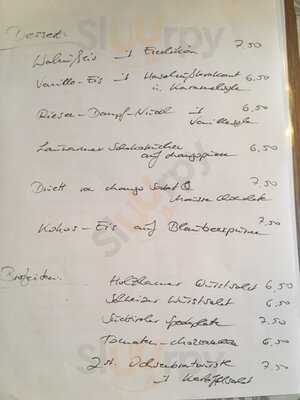 Dessert:
Walnußeis → 7,50
Vanille-Eis → Haselnußkrokant 6,50
u. Karamelsoße
Riesen-Dampf-Nudl → 6,50
Vanillesoße
Lauwarmer Schokokuchen 6,50
auf Mangopüree
Duett v. Mango Sorbet & 7,50
Mousse Chocolate
Kokos-Eis auf Blaubeerpüree 7,50
Brotzeiten:
Holzhamer Wurstsalat 6,50
Schweizer Wurstsalat 6,50
Südtiroler Speckplatte 7,50
Tomaten-Mozzarella 6,50
2 St. Ochsenbratwürste 7,50
→ Kartoffelsalat
Sluurpy